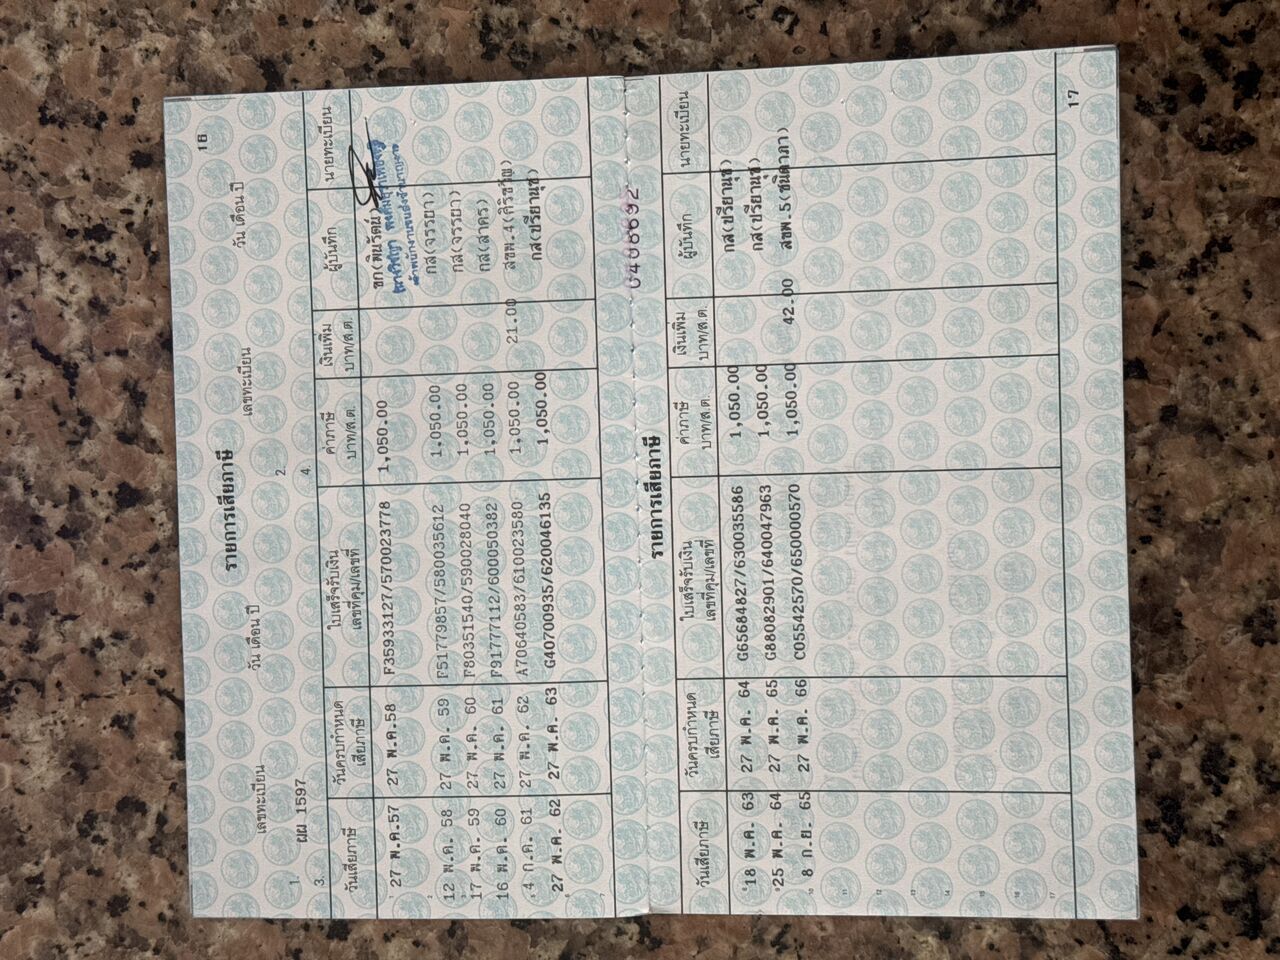 16
รายการเสียภาษี
เลขทะเบียน วัน เดือน ปี เลขทะเบียน วัน เดือน ปี
1. ผผ 1597 2.
3. 4.
วันเสียภาษี วันครบกำหนดเสียภาษี ใบเสร็จรับเงิน เลขที่คุม/เลขที่ ค่าภาษี บาท/ส.ต. เงินเพิ่ม บาท/ส.ต. ผู้บันทึก นายทะเบียน
1 27 พ.ค.57 27 พ.ค.58 F35933127/570023778 1,050.00 ขก(พิมรัตน์)
2 12 พ.ค. 58 27 พ.ค. 59 F51779857/580035612 1,050.00 กส(จรรยา)
17 พ.ค. 59 27 พ.ค. 60 F80351540/590028040 1,050.00 กส(จรรยา)
16 พ.ค. 60 27 พ.ค. 61 F91777112/600050382 1,050.00 กส(สาคร)
4 ก.ค. 61 27 พ.ค. 62 A70640583/610023580 1,050.00 21.00 สขพ.4(ศิริขวัญ)
27 พ.ค. 62 27 พ.ค. 63 G40700935/620046135 1,050.00 กส(ปรียานุช)
0408692
รายการเสียภาษี
วันเสียภาษี วันครบกำหนดเสียภาษี ใบเสร็จรับเงิน เลขที่คุม/เลขที่ ค่าภาษี บาท/ส.ต. เงินเพิ่ม บาท/ส.ต. ผู้บันทึก นายทะเบียน
18 พ.ค. 63 27 พ.ค. 64 G65684827/630035586 1,050.00 กส(ปรียานุช)
25 พ.ค. 64 27 พ.ค. 65 G88082901/640047963 1,050.00 กส(ปรียานุช)
8 ก.ย. 65 27 พ.ค. 66 C05542570/650000570 1,050.00 42.00 สขพ.5(ชนิดาภา)
10
11
12
13
14
15
16
17
17